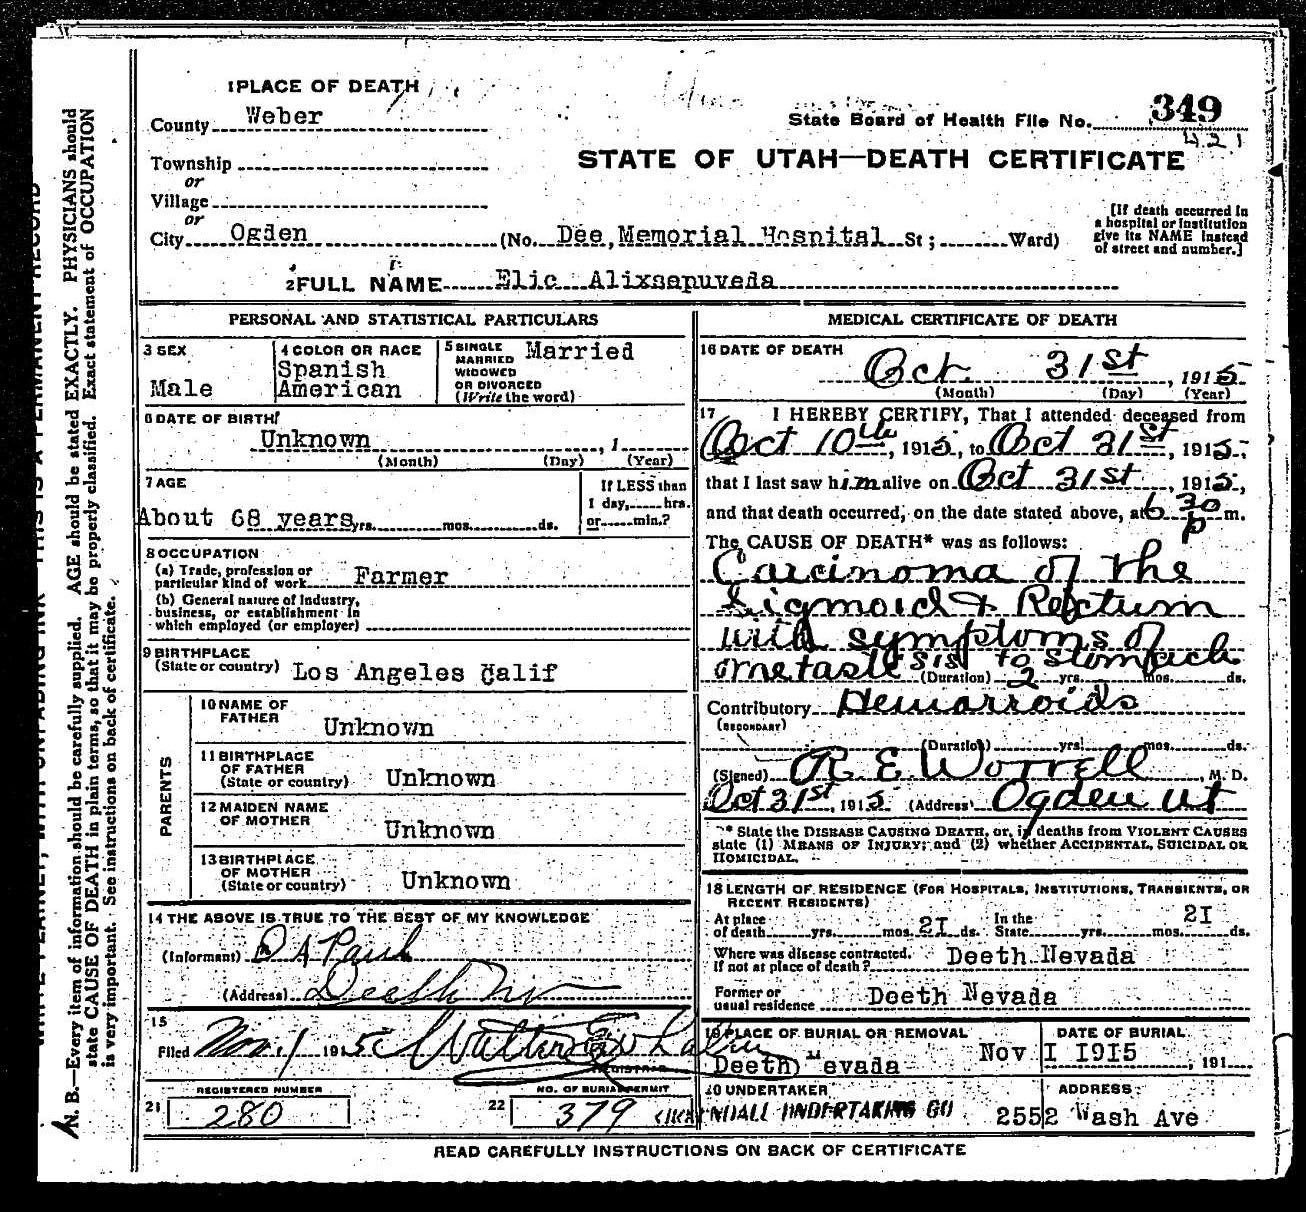 1 PLACE OF DEATH
County Weber
State Board of Health File No. 349
421
Township
or
Village
or
STATE OF UTAH—DEATH CERTIFICATE
City Ogden (No. Dee Memorial Hospital St; Ward)
[If death occurred in
a hospital or institution
give its NAME instead
of street and number.]
2 FULL NAME Elic Alixsepuveda
PERSONAL AND STATISTICAL PARTICULARS
3 SEX
Male
4 COLOR OR RACE
Spanish
American
5 SINGLE
MARRIED
WIDOWED
OR DIVORCED
(Write the word)
Married
6 DATE OF BIRTH
Unknown , 1
(Month) (Day) (Year)
7 AGE
About 68 years yrs. mos. ds.
If LESS than
1 day, hrs.
or min.?
8 OCCUPATION
(a) Trade, profession or
particular kind of work Farmer
(b) General nature of industry,
business, or establishment in
which employed (or employer)
9 BIRTHPLACE
(State or country) Los Angeles Calif
PARENTS
10 NAME OF
FATHER
Unknown
11 BIRTHPLACE
OF FATHER
(State or country) Unknown
12 MAIDEN NAME
OF MOTHER
Unknown
13 BIRTHPLACE
OF MOTHER
(State or country) Unknown
14 THE ABOVE IS TRUE TO THE BEST OF MY KNOWLEDGE
(Informant) D A Paul
(Address) Deeth Nev
15
Filed Nov. 1 1915
REGISTRAR
REGISTERED NUMBER
21 280
NO. OF BURIAL PERMIT
22 379
MEDICAL CERTIFICATE OF DEATH
16 DATE OF DEATH
Oct. 31st , 1915
(Month) (Day) (Year)
17 I HEREBY CERTIFY, That I attended deceased from
Oct 10th, 1915, to Oct 31st, 1915,
that I last saw him alive on Oct 31st, 1915,
and that death occurred, on the date stated above, at 6 30 p m.
The CAUSE OF DEATH* was as follows:
Carcinoma of the
Sigmoid & Rectum
with symptoms of
metastesis to stomach
(Duration) 2 yrs. mos. ds.
Contributory Hemarroids
(SECONDARY)
(Duration) yrs. mos. ds.
(Signed) R. E. Worrell, M. D.
Oct 31st, 1915 (Address) Ogden Ut
* State the DISEASE CAUSING DEATH, or, in deaths from VIOLENT CAUSES
state (1) MEANS OF INJURY; and (2) whether ACCIDENTAL, SUICIDAL OR
HOMICIDAL.
18 LENGTH OF RESIDENCE (FOR HOSPITALS, INSTITUTIONS, TRANSIENTS, OR
RECENT RESIDENTS)
At place
of death yrs. mos. 21 ds.
In the
State yrs. mos. 21 ds.
Where was disease contracted,
If not at place of death? Deeth Nevada
Former or
usual residence Deeth Nevada
19 PLACE OF BURIAL OR REMOVAL
Deeth Nevada
DATE OF BURIAL
Nov I I9I5 , 191
20 UNDERTAKER
UNDERTAKING CO
ADDRESS
2552 Wash Ave
READ CAREFULLY INSTRUCTIONS ON BACK OF CERTIFICATE
N. B.—Every item of information should be carefully supplied. AGE should be stated EXACTLY. PHYSICIANS should
state CAUSE OF DEATH in plain terms, so that it may be properly classified. Exact statement of OCCUPATION
is very important. See instructions on back of certificate.